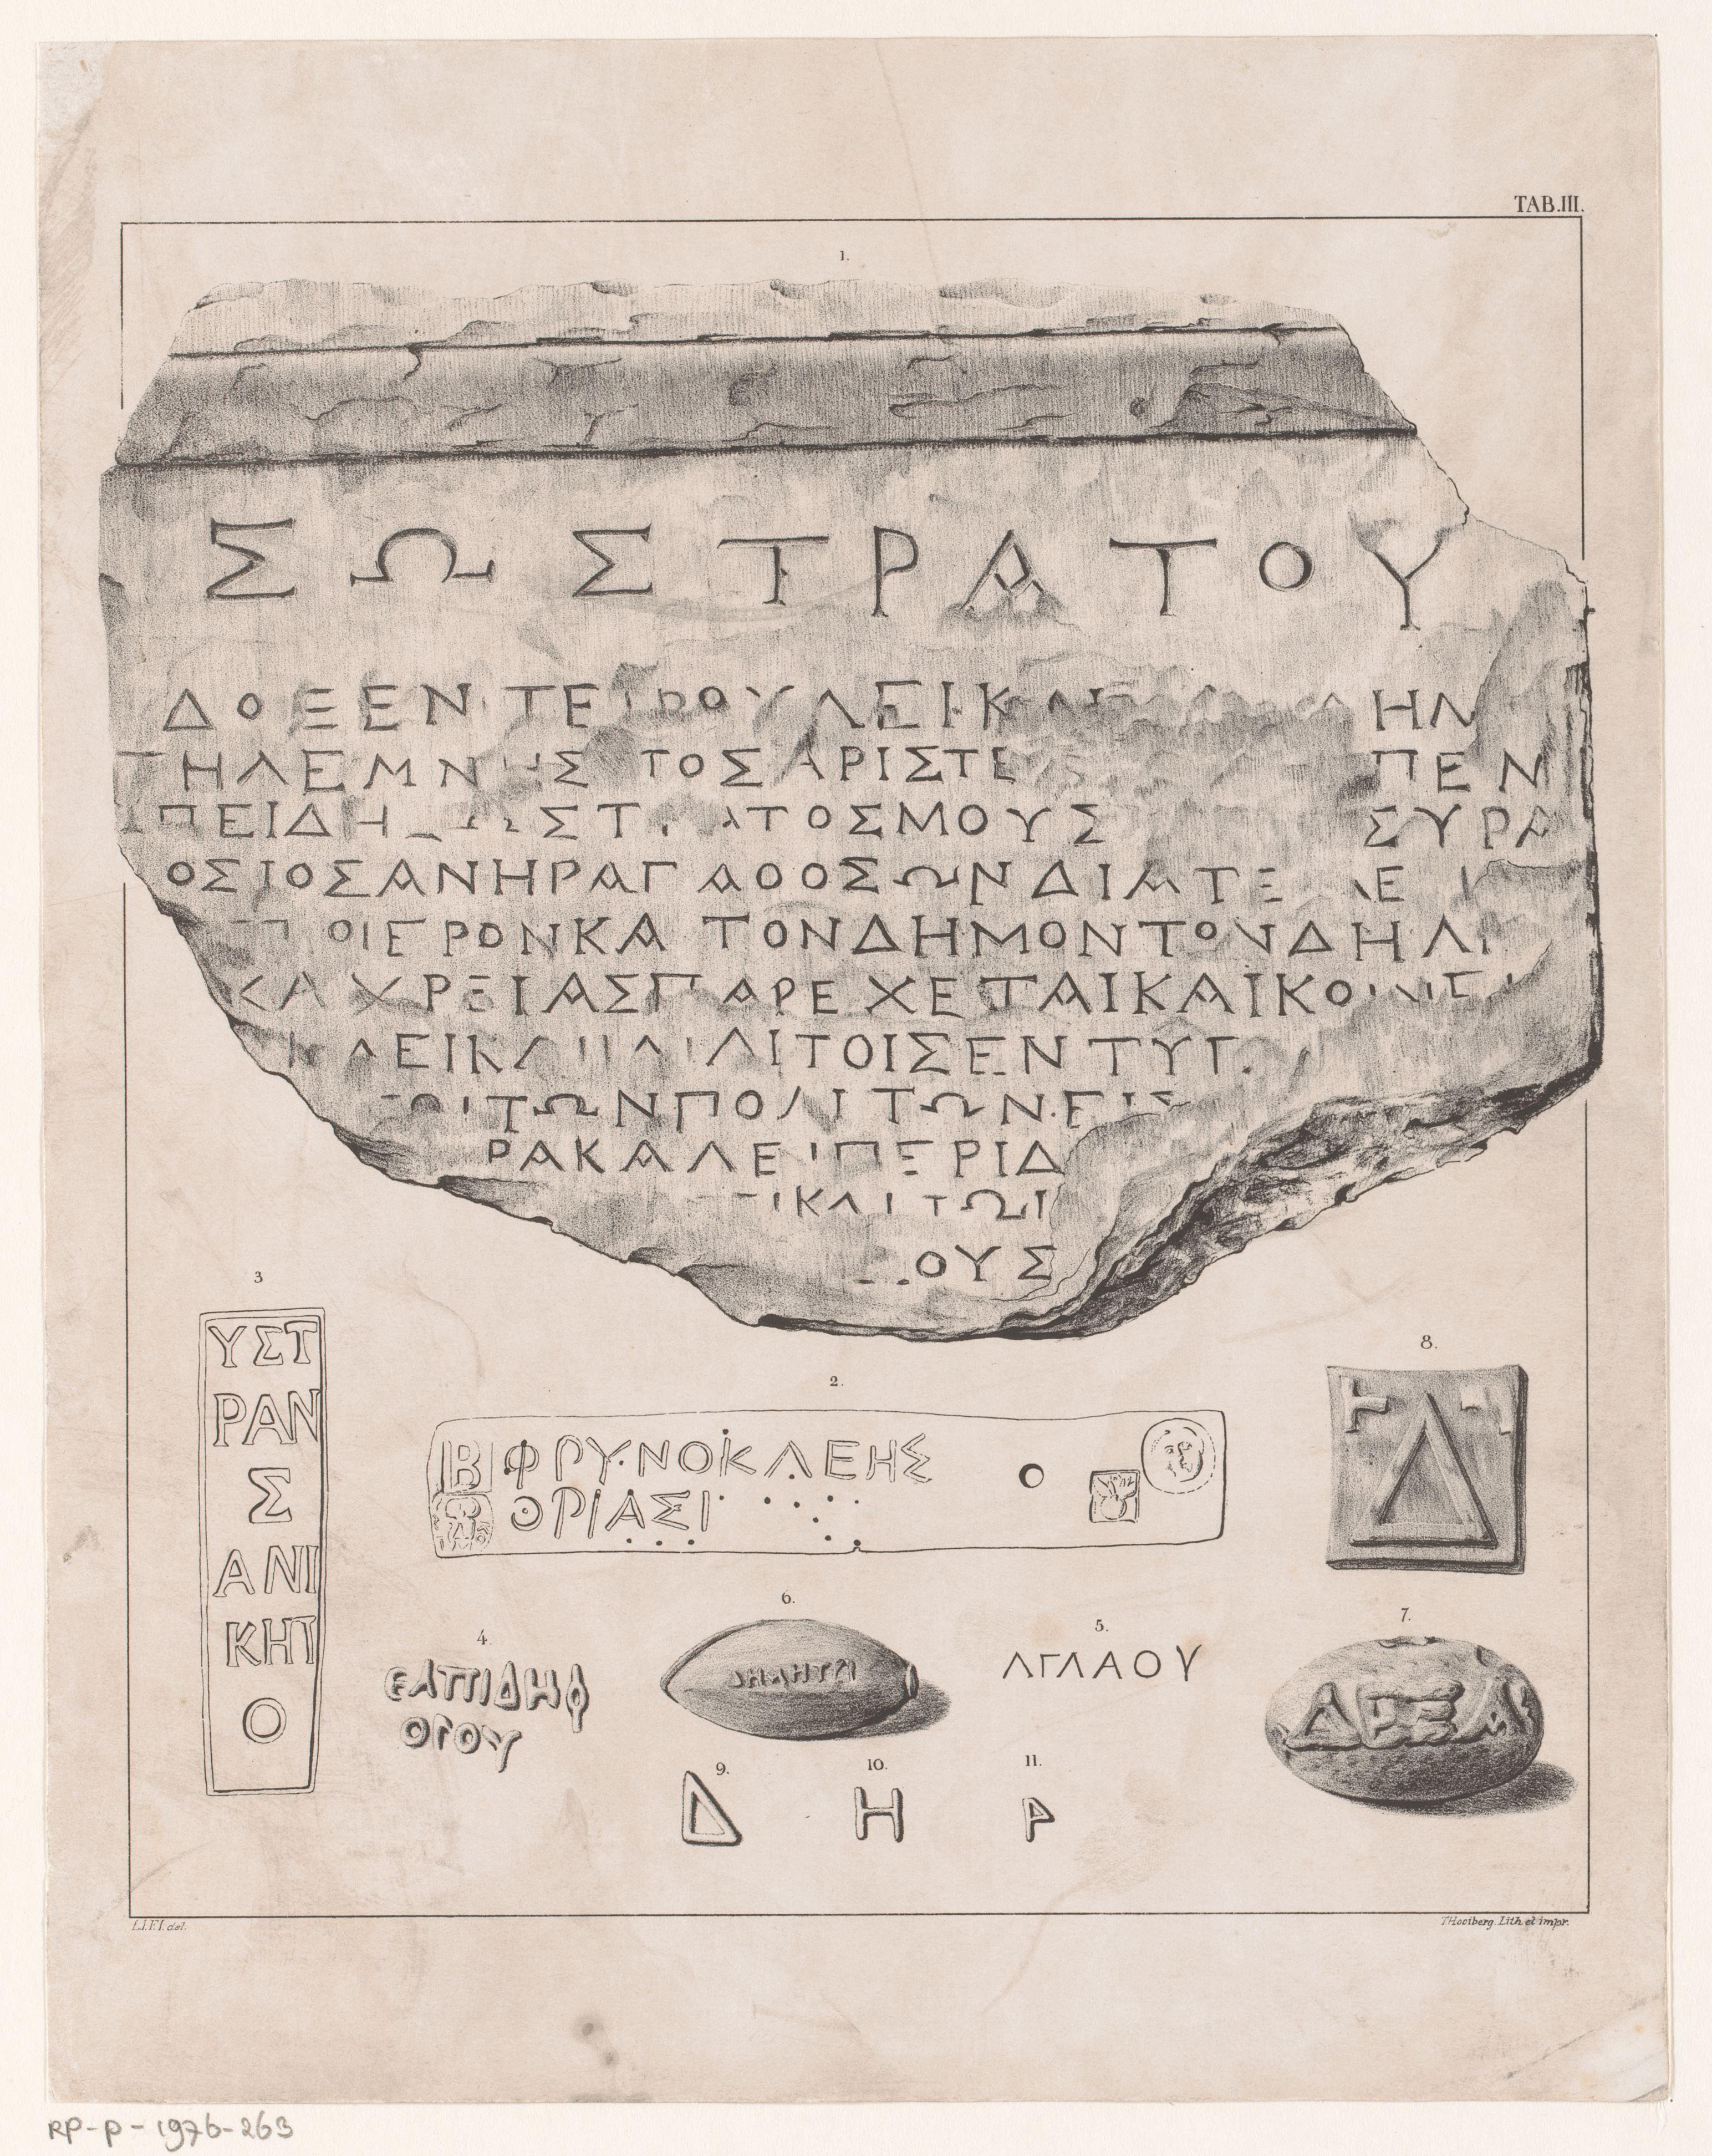 TAB.III.
1.
ΣΩΣΤΡΑΤΟΥ
ΔΟΞΕΝ ΤΕΙ ΒΟΥΛΕΙ Κ ΗΛ
ΤΗΛΕΜΝ ΤΟΣ ΑΡΙΣΤΕ ΠΕΝ
ΠΕΙΔΗ ΑΤΟΣΜΟΥΣ ΣΥΡΑ
ΟΣΙΟΣΑΝΗΡΑΓΑΟΟΣΩΝΔΙΑΤΕ ΛΕ
ΟΙΕΡΟΝΚΑ ΤΟΝΔΗΜΟΝΤΟΝΔΗΛΙ
ΚΑ ΧΡΕΙΑΣΠΑΡΕΧΕΤΑΙΚΑΙΚΟΙΝΕΙ
ΛΕΙΚΑΙ ΛΙΤΟΙΣΕΝΤΥΓ
ΤΩΝΠΟΛΙΤΩΝΕΙΣ
ΡΑΚΑΛΕΙΠΕΡΙΔ
ΙΚΑΙΤΩΙ
ΟΥΣ
3
ΥΣΤ
ΡΑΝ
Σ
ΑΝΙ
ΚΗΤ
Ο
2.
Β ΦΡΥΝΟΚΛΕΗΣ
ΘΡΙΑΣΙ
8.
Δ
4.
ΕΛΠΙΔΗΦ
ΟΓΟΥ
6.
5.
ΛΓΛΑΟΥ
7.
ΔΕΞΑ
9.
Δ
10.
Η
11.
Ρ
L.I.F.I. del.
T Hooiberg. Lith. et impr.
RP-P-1976-263